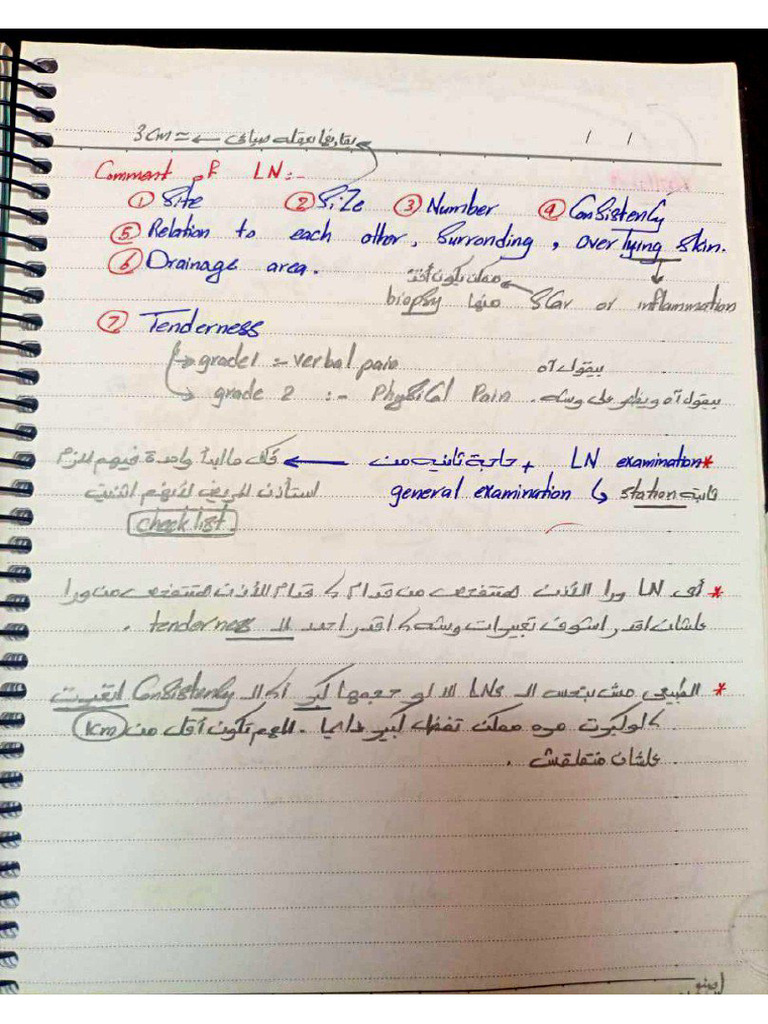 بقارنها بعقلة صباعي ← ≈ 3 cm
Comment of LN:-
① Site ② Size ③ Number ④ Consistency
⑤ Relation to each other, Surronding, overlying skin.
⑥ Drainage area.
ممكن يكون أخد
biopsy منها ← Scar or inflammation
⑦ Tenderness
→ grade 1 :- verbal pain بيقول آه
→ grade 2 :- Physical Pain. بيقول آه ويظهر على وشه
* LN examination + حاجة تانيه من ← قبل ما ابدأ واحدة فيهم لازم
general examination ↳ station تابتة استأذن المريض لأنهم اتنين
check list.
* أي LN ورا الأذن هتتفحص من قدام و قدام الأذن هتتفحص من ورا
علشان اقدر اشوف تعبيرات وشه و اقدر احدد الـ tenderness.
* الطبيعي مش بنحس الـ LNs الا لو حجمها كبر أو الـ Consistency اتغيرت
و لو كبرت مره ممكن تفضل كبير دايما. المهم تكون أقل من 1cm
علشان منقلقش.